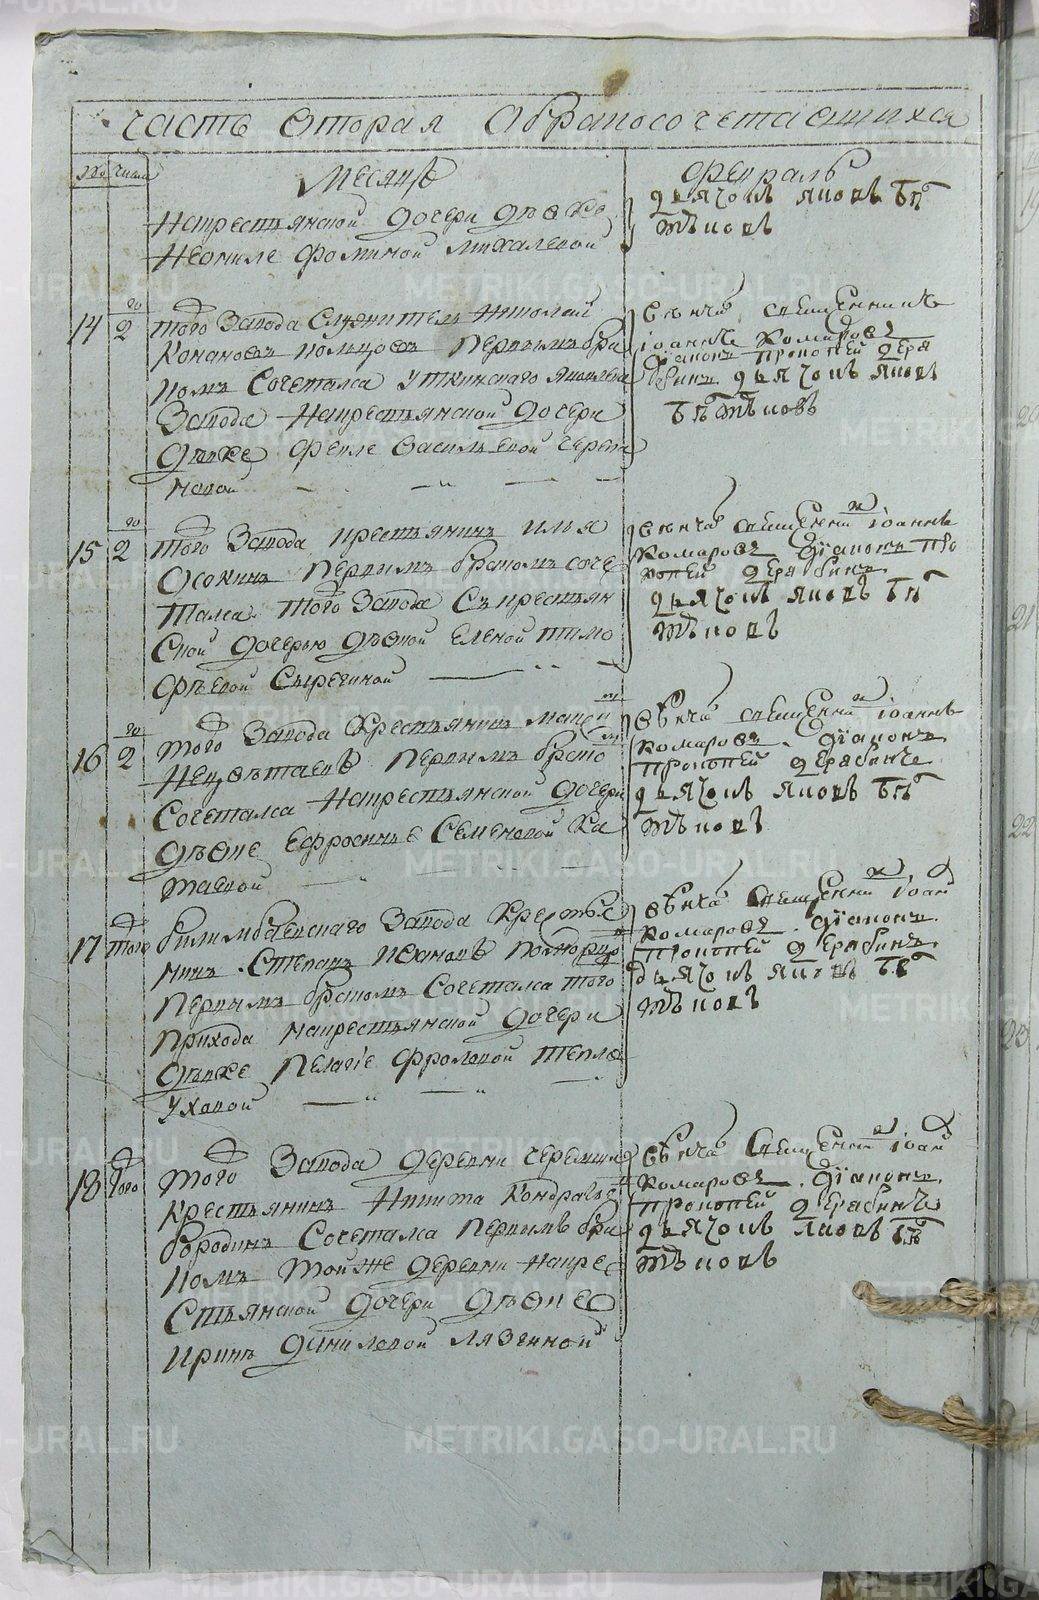 часть вторая о бракосочетавшихся
№ числа
месяцъ
февраль
накрестьянской дочери дѣвке
Неониле Фоминой Михалевой
дьячокъ яковъ бѣ
тѣковъ
14
2
го
того завода служитель николай
Конановъ перьвымъ бра
комъ сочетался уткинскаго
завода накрестьянской дочери
дѣвке Фекле Васильевой
новой
венча священникъ
iоаннъ Комаровъ
дiаконъ прокопей деря
бинъ дьячокъ яковъ
бѣтѣковъ
15
2
го
того завода крестьянинъ илья
Осокинъ перьвымъ бракомъ соче
тался того завода съ крестьян
ской дочерью дѣвкой еленой тимо
фѣевой Сырегиной
венча священни iоаннъ
Комаровъ дiаконъ про
копей дерябинъ
дьячокъ яковъ бѣ
тѣковъ
16
2
го
того завода крестьянинъ
перьвымъ брако
сочетался накрестьянской дочери
дѣвке ефросинье Семеновой Ка
таевой
венча священни iоаннъ
Комаровъ дiаконъ
прокопей дерябинъ
дьячокъ яковъ бѣ
тѣковъ
17
того
билимбаевскаго завода кресть
нинъ Степанъ
перьвымъ бракомъ сочетался того
прихода накрестьянской дочери
дѣвке Пелагiе Фроловой тепло
уховой
венча священни iоан
Комаровъ дiаконъ
прокопей дерябинъ
дьячокъ яковъ бѣ
тѣковъ
18
того
того завода деревни черемши
крестьянинъ Никита Кондратье
бородинъ сочетался перьвымъ бра
комъ тойже деревни накре
стьянской дочери дѣвке
иринѣ даниловой Лязгиной
венча священни iоан
Комаровъ дiаконъ
прокопей дерябинъ
дьячокъ яковъ бѣ
тѣковъ
METRIKI.GASO-URAL.RU